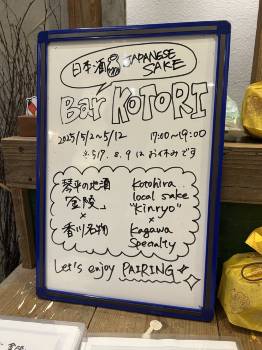 日本酒 JAPANESE SAKE
Bar KOTORI
2025/5/2~5/12 17:00~19:00
※5/7.8.9 はお休みです
琴平の地酒 Kotohira
「金陵」 local sake "Kinryo"
× ×
香川名物 Kagawa Specialty
Let's enjoy PAIRING